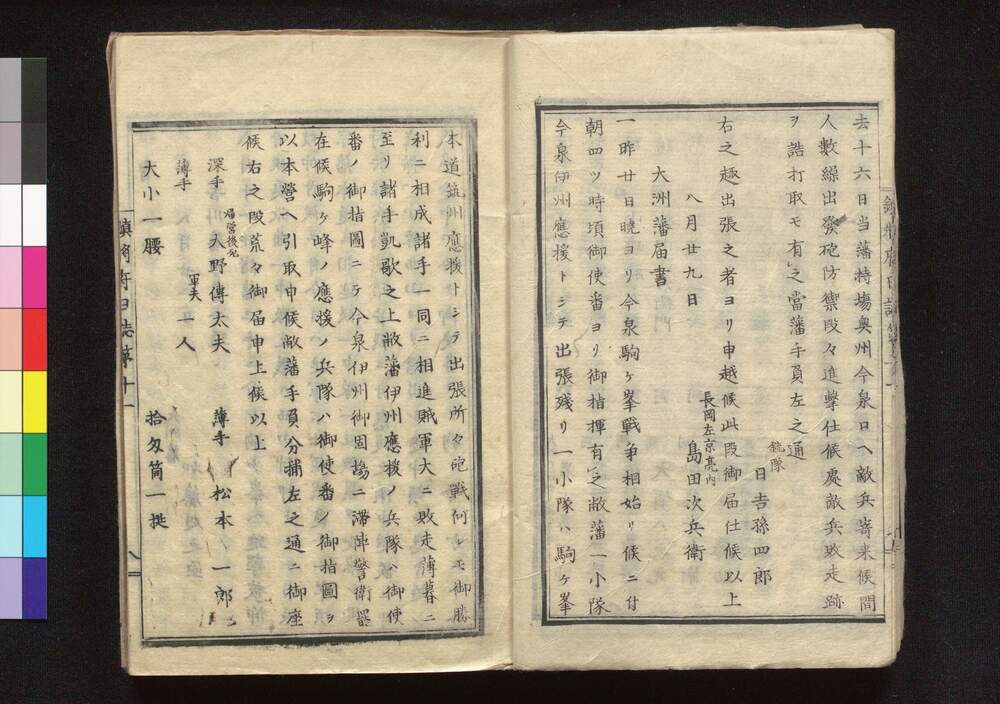 去十六日当藩持場奥州今泉口ヘ敵兵寄来候間
人數繰出發砲防禦段々進撃仕候處敵兵敗走跡
ヲ詰打取モ有之當藩手負左之通
銃隊
日吉孫四郎
右之趣出張之者ヨリ申越候此段御届仕候以上
長岡左京亮内
八月廿九日
島田次兵衛
大洲藩届書
一昨廿日暁ヨリ今泉駒ヶ峯戰争相始リ候ニ付
朝四ツ時頃御使番ヨリ御指揮有之敝藩一小隊
今泉伊州應援トシテ出張残リ一小隊ハ駒ヶ峯
本道筑州應援トシテ出張所々砲戰何レモ御勝
利ニ相成諸手一同ニ相進賊軍大ニ敗走薄暮ニ
至リ諸手凱歌之上敝藩伊州應援ノ兵隊ハ御使
番ノ御指圖ニテ今泉伊州御固場ニ滞陣警衛罷
在候駒ヶ峰ノ應援ノ兵隊ハ御使番ノ御指圖ヲ
以本營ヘ引取申候敝藩手負分捕左之通ニ御座
候右之段荒々御届申上候以上
深手
帰營後死
人野傳太夫
薄手
松本一郎
薄手
軍夫
一人
大小一腰
拾匁筒一挺
鎮将府日誌第十一
八